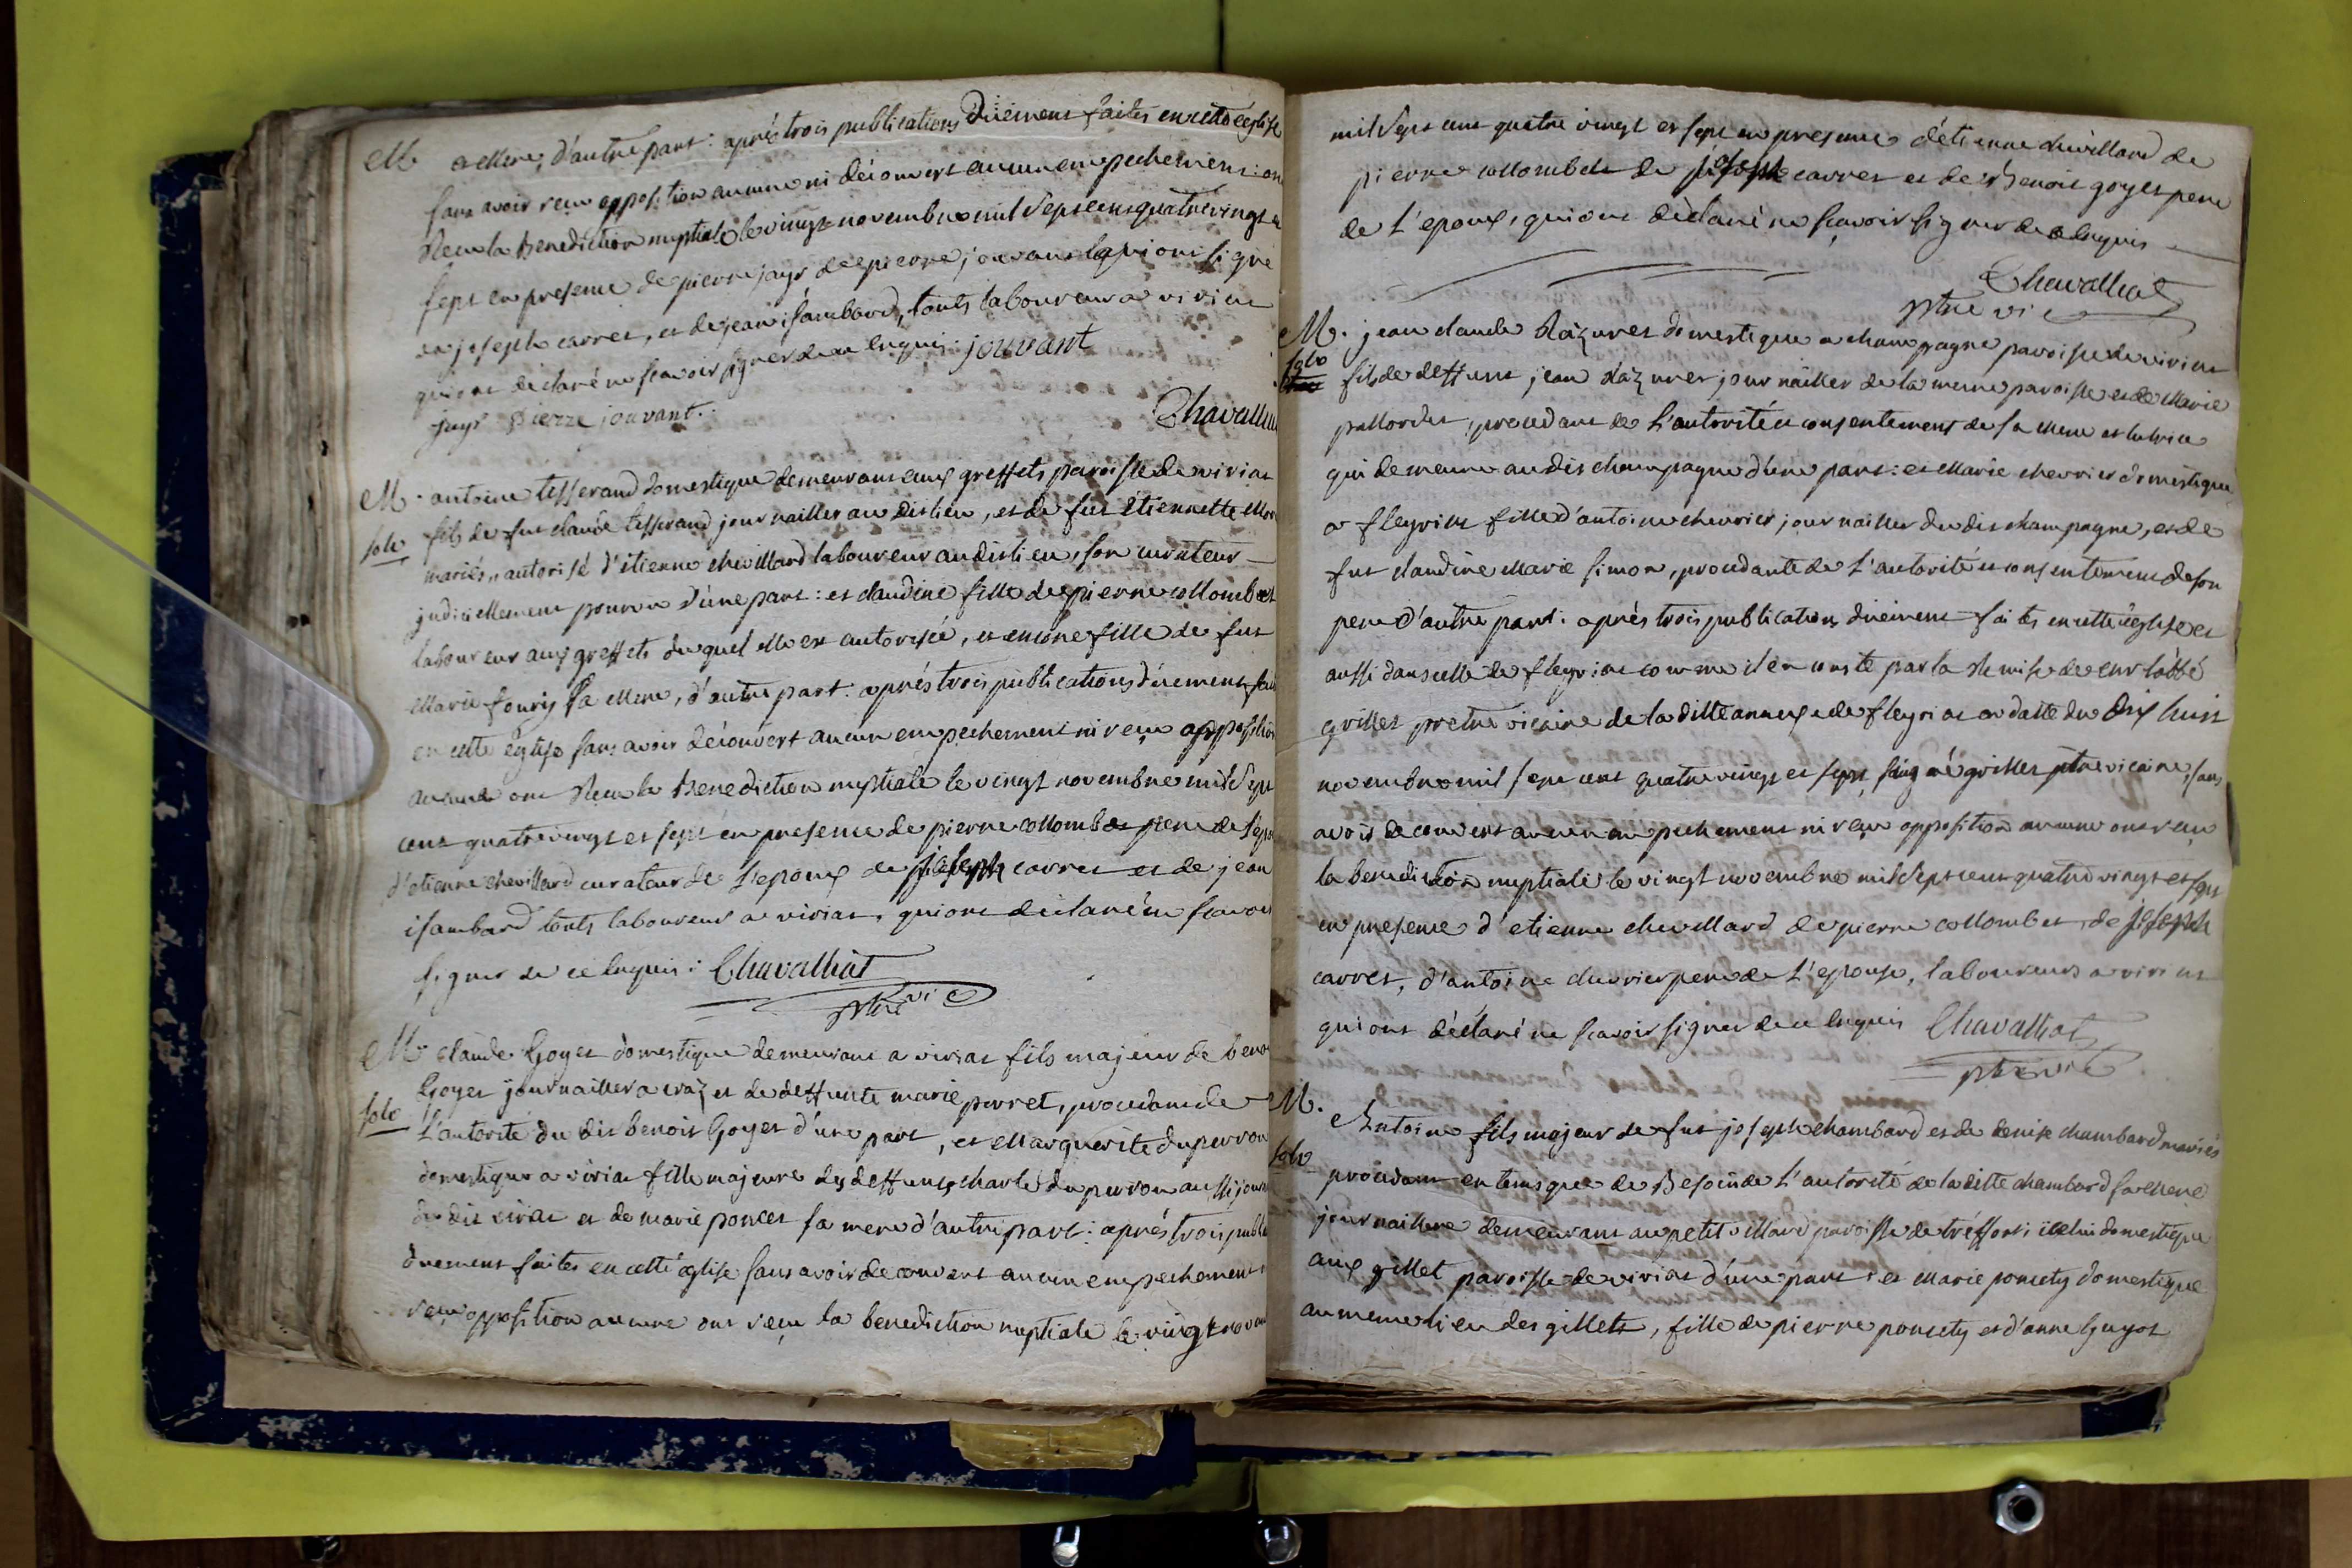 M. a Mere, d'autre part : aprés trois publications duëment faites en cette eglise
sans avoir reçu opposition aucune ni découvert aucun empechement : on
Recu la Benediction nuptiale le vingt novembre mil sept cens quatre vingt e
sept en presence de pierre jayr de pierre jouvant qui ont signé
de joseph carret, et de jean isambard, touts laboureurs a viriat
qui ont déclaré ne sçavoir signer de ce enquis : jouvant
jayr pierre jouvant.
Chavalliat
M. antoine tisserand domestique demeurant aux greffets paroisse de viriat
solv fils de fut claude tisserand journaillier au dit lieu, et de fut étiennette
mariés, autorisé d'étienne chevillard laboureur au dit lieu, son curateur
judiciellement pourvu d'une part : et claudine fille de pierre collombet
laboureur aux greffets duquel elle est autorisée, et encore fille de fut
Marie sa Mere, d'autre part : aprés trois publications düement
en cette eglise sans avoir découvert aucun empechement ni reçu opposition
aucune ont Recu la Benediction nuptiale le vingt novembre mil sept
cens quatre vingt et sept en presence de pierre collombet pere de l'epo
d'etienne chevillard curateur de l'epoux de joseph carret et de jean
isambard touts laboureurs a viriat, qui ont déclaré ne scavoir
signer de ce enquis : Chavalliat
ptre vi
M. claude Goyet domestique demeurant a viriat fils majeur de beno
Goyet journaillier a craz et de deffunte marie perret, procedant de
solv L'autorité du dit benoit Goyet d'une part, et Marguerite duperron
domestique a viriat fille majeure des deffunts charle duperron aussi journ
du dit viriat et de marie poncet sa mere d'autre part : aprés trois publi
düement faites en cette église sans avoir decouvert aucun empechement
reçu opposition aucune ont reçu la benediction nuptiale le vingt nov
mil sept cens quatre vingt et sept en presence d'étienne chevillard de
pierre collombet de joseph carret et de Benoit goyet pere
de l'epoux, qui ont déclaré ne sçavoir signer de ce enquis
Chavalliat
ptre vi
M. jean claude Razuret domestique a champagne paroisse de viriat
solv fils de deffunt jean Razuret journaillier de la meme paroisse et de Marie
procedant de l'autorité et consentement de sa Mere et tutrice
qui demeure au dit champagne d'une part : et Marie chevrier domestique
a fleyriat fille d'antoine chevrier journaillier du dit champagne, et de
fut claudine Marie simon, procedante de l'autorité et consentement de son
pere d'autre part : aprés trois publications düement faites en cette église et
aussi dans celle de fleyriat comme il en conste par la Remise de mr l'abbé
grillet pretre vicaire de la ditte annexe de fleyriat en datte du dix huit
novembre mil sept cens quatre vingt et sept, signé grillet ptre vicaire, sans
avoir decouvert aucun empechement ni reçu opposition aucune ont reçu
la benediction nuptiale le vingt novembre mil sept cens quatre vingt et sept
en presence d'etienne chevillard de pierre collombet de joseph
carret, d'antoine chevrier pere de l'epouse, laboureurs a viriat
qui ont déclaré ne scavoir signer de ce enquis Chavalliat
ptre vi
M. Antoine fils majeur de fut joseph chambard et de denise chambard mariés
solv procedant en tems que de Besoin de l'autorité de la ditte chambard sa Mere
journailliere demeurant au petit paroisse de tréffort ; icelui domestique
aux gillet paroisse de viriat d'une part : et Marie poncety domestique
au meme lieu des gillets, fille de pierre poncety et d'anne Guyot